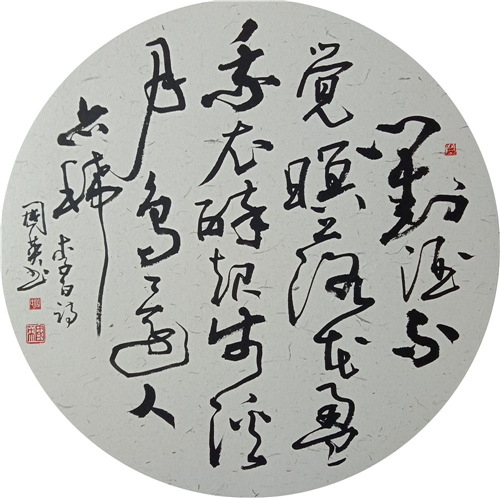 對酒不
觉暝落花盈
我衣醉起步溪
月鸟还人
亦稀
李白诗